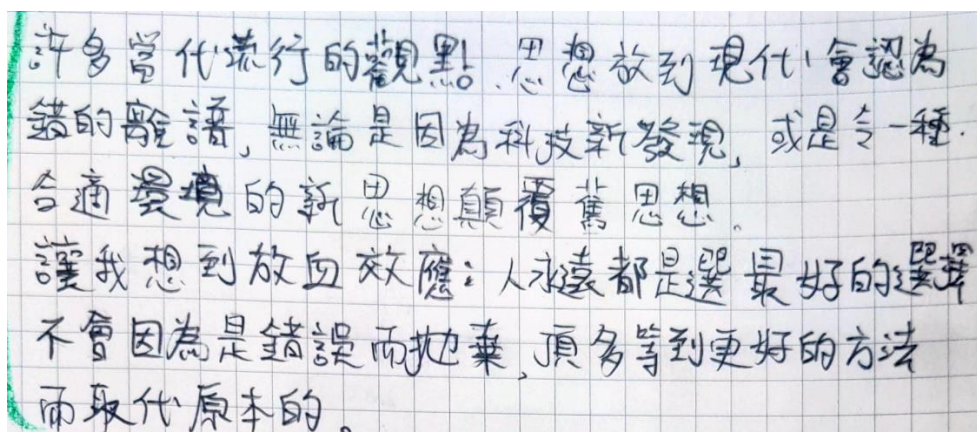 許多當代流行的觀點、思想放到現代,會認為
錯的離譜,無論是因為科技新發現,或是令一種
合適環境的新思想顛覆舊思想。
讓我想到放血效應:人永遠都是選最好的選擇
不會因為是錯誤而拋棄,頂多等到更好的方法
而取代原本的。